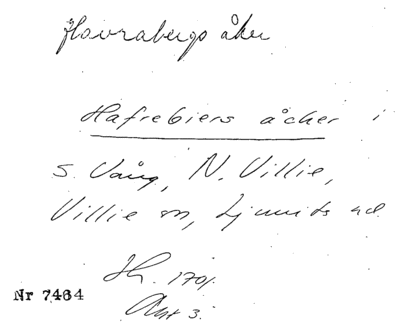 Havrabergs åker
Hafrebiers åcker i
S. Vång, N. Villie,
Villie sn, Ljunits hd.
Jb. 1701.
Akt 3.
Nr 7464